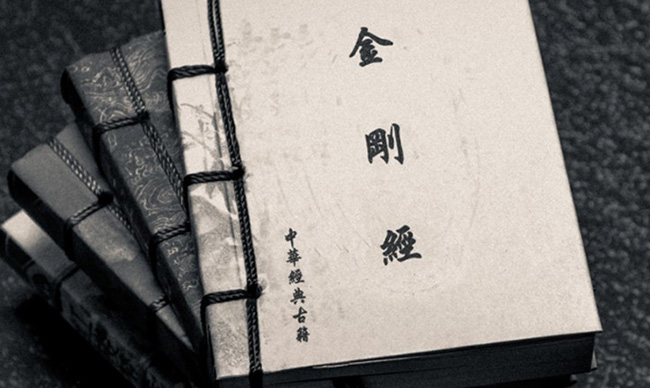 金剛經
中華經典古籍